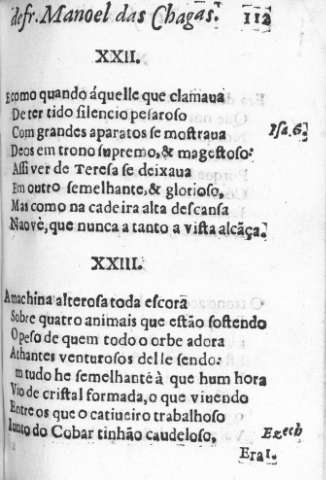 de fr. Manoel das Chagas. 112
XXII.
E como quando áquelle que clamaua
De ter tido silencio pesaroso
Com grandes aparatos se mostraua Isa. 6.
Deos em trono supremo, & magestoso:
Assi ver de Teresa se deixaua
Em outro semelhante, & glorioso,
Mas como na cadeira alta descansa
Naovè, que nunca a tanto a vista alcãça.
XXIII.
A machina alterosa toda escorã
Sobre quatro animais que estão sostendo
O peso de quem todo o orbe adora
Athantes venturosos delle sendo:
Em tudo he semelhante à que hum hora
Vio de cristal formada, o que viuendo
Entre os que o catiueiro trabalhoso
Iunto do Cobar tinhão caudeloso, Ezech
Era 1.